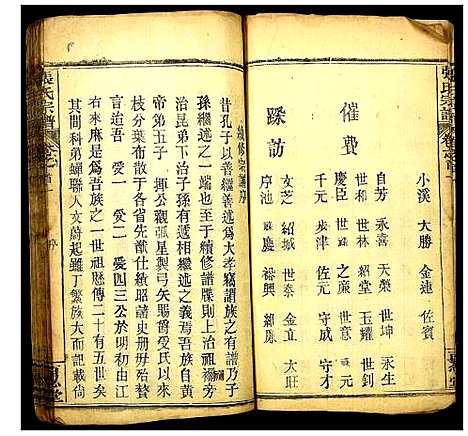 張氏宗譜
卷之首
小溪 大勝 金連 佐賓
催費
自芳 永喜 天榮 世坤 永生
世和 世林 紹堂 玉耀 世芹
慶臣 世越 之廉 世意
千元 步津 佐元 守成 守才
踩訪
文芝 紹城 世泰 金立 大旺
序池 慶 裕興
續修宗譜序
昔孔子以善繼善述為大孝竊謂族之有譜乃子
孫繼述之一端也至于續修譜牒則上治祖禰旁
治昆弟下治子孫有遞相繼述之義焉吾族自黃
帝第五子 揮公觀弧星製弓矢賜爵受氏以來
枝分葉布散于各省先謝仕績昭諸史冊毋殆殆
言迨吾 愛一 愛二 愛四三公於明初由江
右來麻是為吾族之一世祖歷傳二十有五世矣
其間科弟蟬聯人文蔚起雖丁繁族大而記載倘
張氏宗譜
卷之首
序